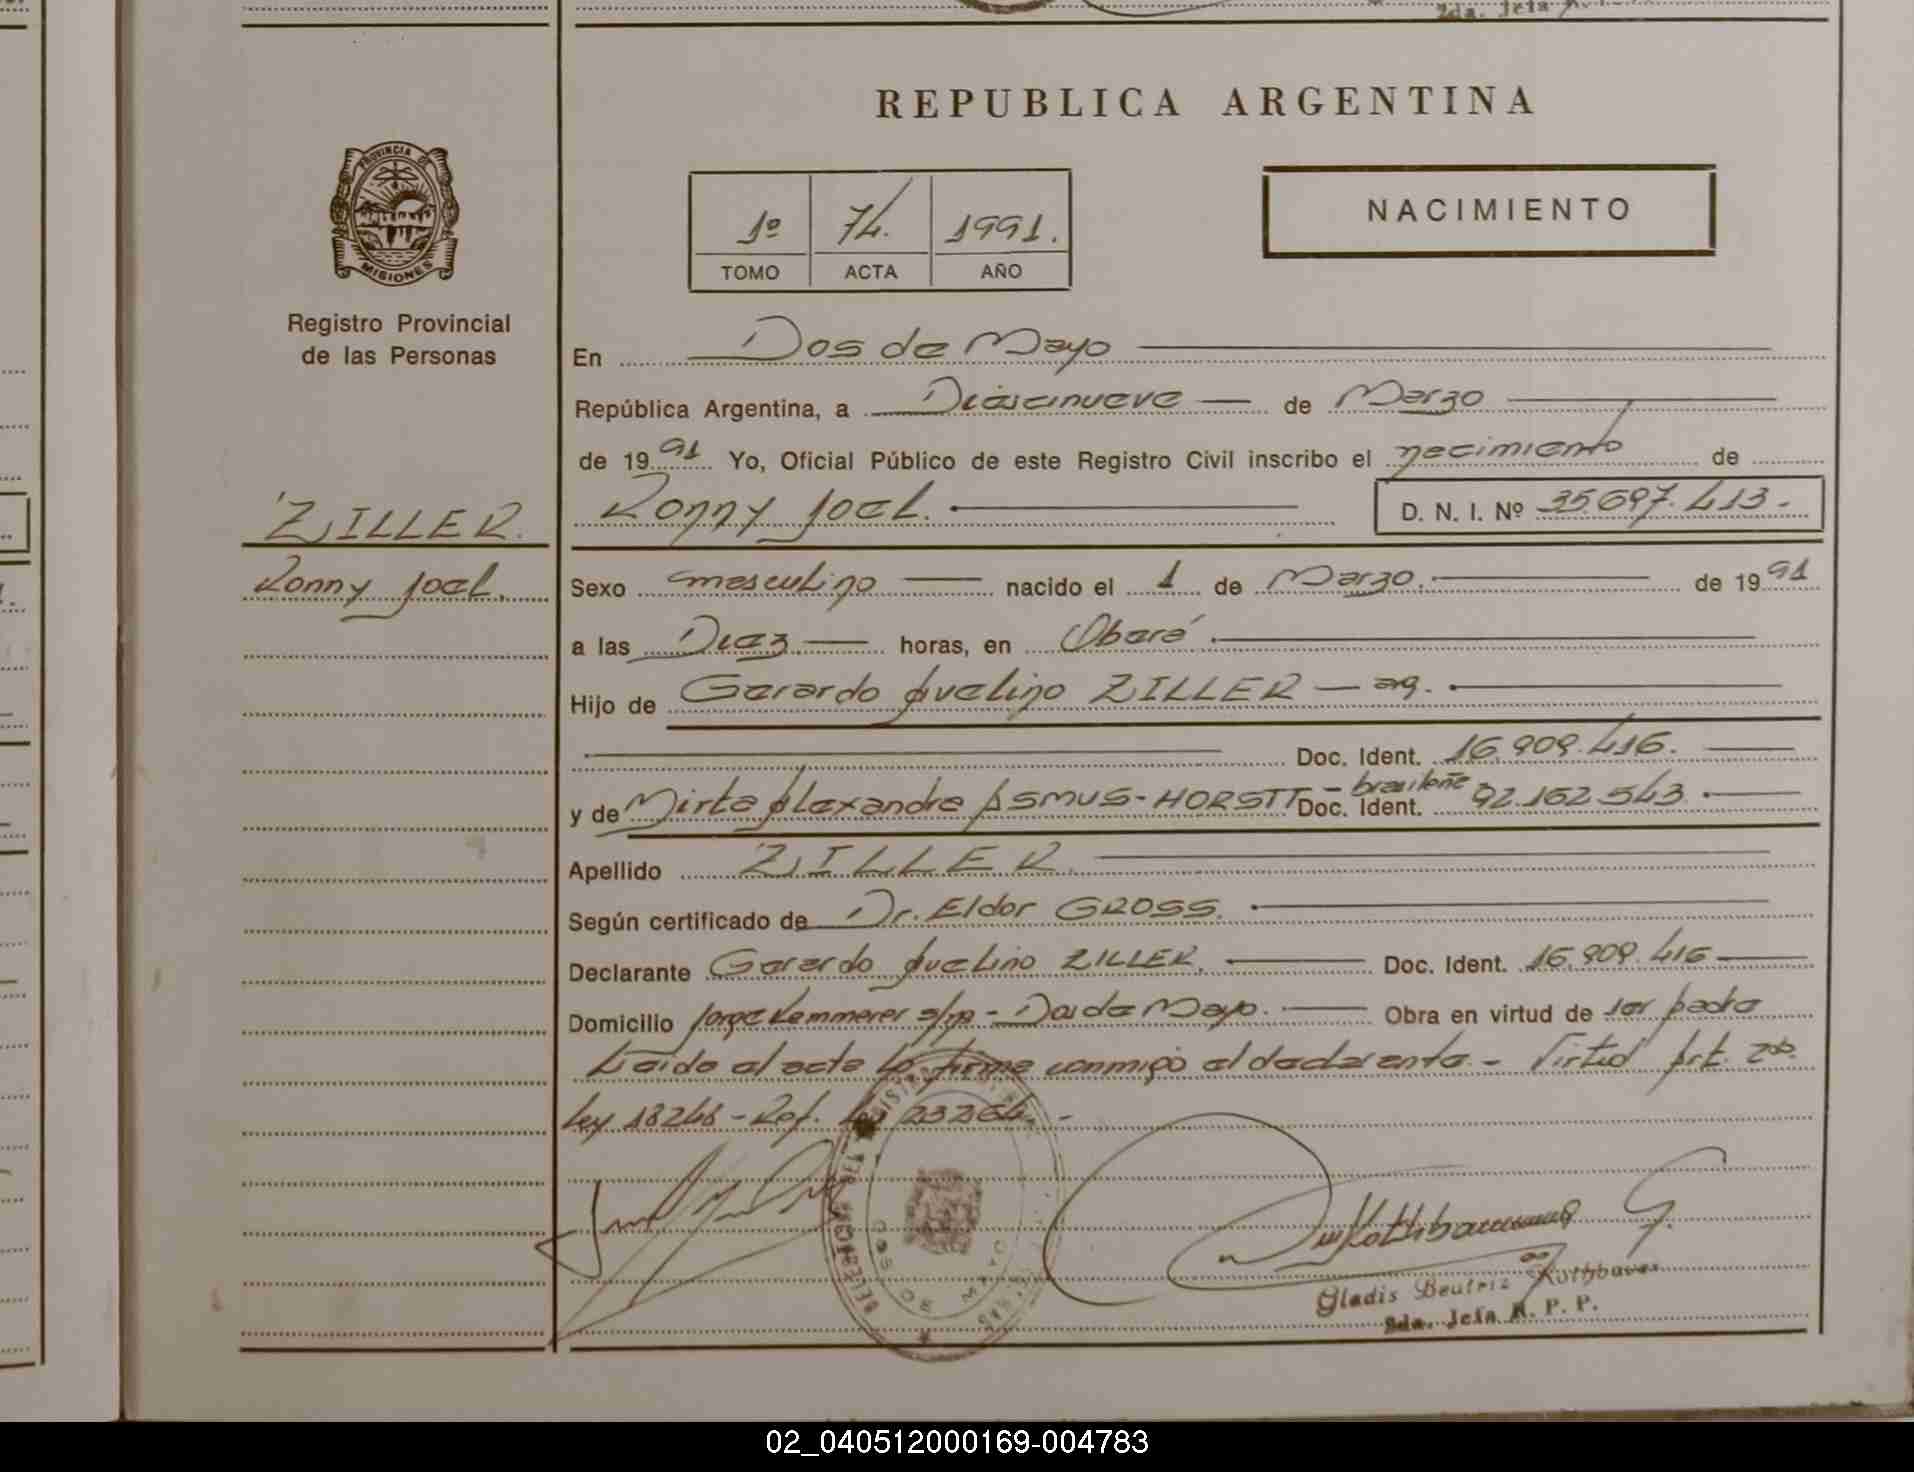 2da. Jefa
REPUBLICA ARGENTINA
PROVINCIA DE
MISIONES
Registro Provincial
de las Personas
1º 74. 1991.
TOMO ACTA AÑO
NACIMIENTO
En Dos de Mayo
República Argentina, a Diecinueve de Marzo
de 1991 Yo, Oficial Público de este Registro Civil inscribo el nacimiento de
ZILLER.
Ronny Joel.
Ronny Joel. D. N. I. Nº 35.697.413.-
Sexo masculino nacido el 1 de Marzo. de 1991
a las Diez horas, en Oberá
Hijo de Gerardo Avelino ZILLER - arg.
Doc. Ident. 16.909.416.
y de Mirta Alexandra ASMUS-HORSTT - brasileña Doc. Ident. 92.162.543
Apellido ZILLER.
Según certificado de Dr. Eldor GROSS.
Declarante Gerardo Avelino ZILLER. Doc. Ident. 16.909.416
Domicilio Jorge Kemmerer s/nº - Dos de Mayo. Obra en virtud de ser padre
Leído el acta lo firma conmigo el declarante - Virtud Art. 2do.
Ley 18248 - Ref. Ley 23264 -
DOS DE MAYO
Gladis Beatriz Rothbauer
2da. Jefa R. P. P.
02_040512000169-004783